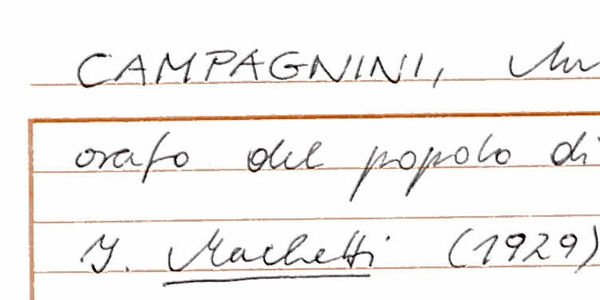 CAMPAGNINI,
orafo del popolo di
I. Machetti (1929)